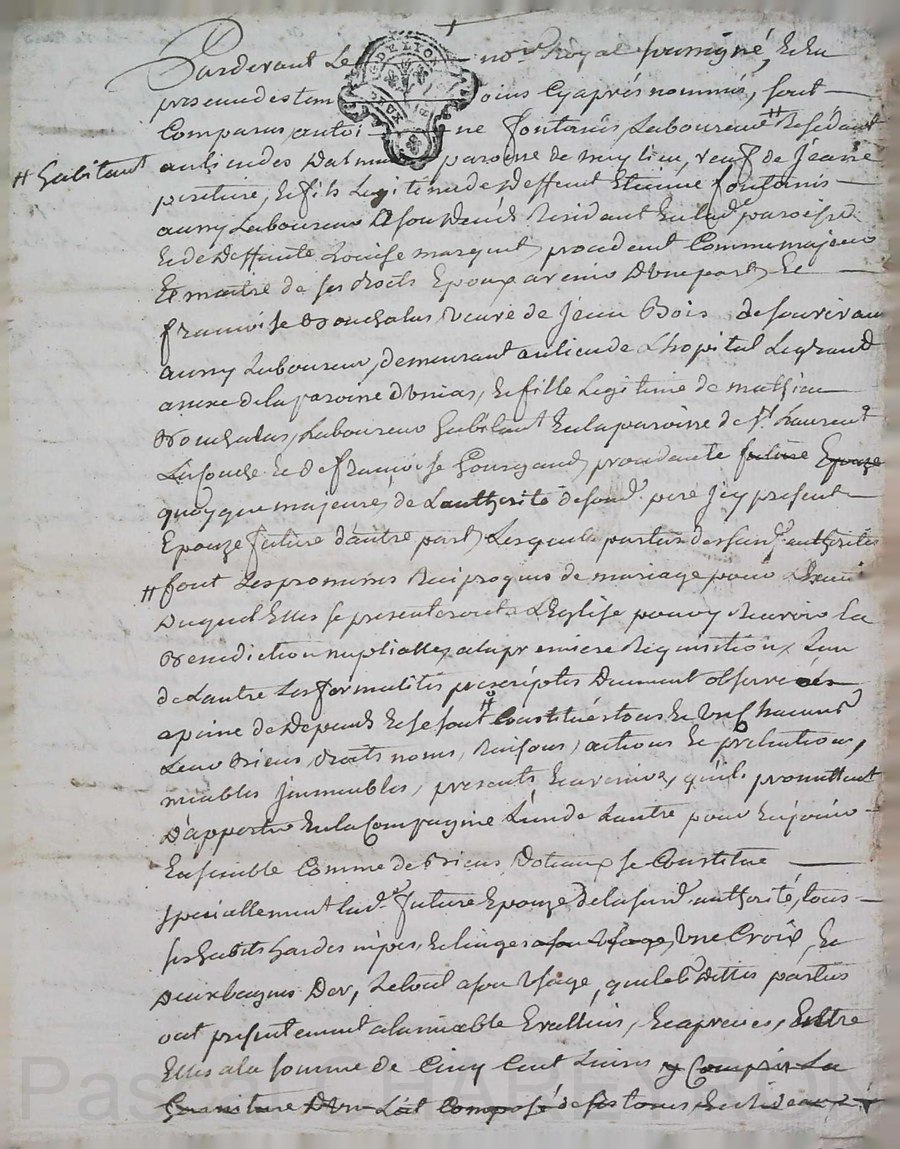 Pardevant Le no.re Royal soussigné, Et En
presence des tem oins Cy après nommés, sont
Comparus antoi ne fontanis Laboureur # Résidant
# habitant
au lieu des Dalmas paroisse de veuf de Jeanne
Et fils Legitime de deffunt Etienne fontanis
aussy Laboureur Résidant En lad.e paroisse
Et de Deffunte Louise procédant Comme majeur
Et maître de ses droits Epoux avenir D'une part, Et
françoise veuve de Jean Bois de son vivant
aussy Laboureur, demeurant au lieu de Lhopital Legrand
annexe de la paroisse d'unias, Et fille Legitime de mathieu
Laboureur habitant En la paroisse de St. Laurent
Laconche Et de françoise procedante future Epouze
quoyque majeure, de L'authorité de sond. pere Icy présent
Epouze future d'autre part, Lesquels parties de susd. authorités
# font Les promesses Reciproques de mariage pour
Duquel Elles se presenteront a L'Eglise pour y Recevoir La
Benediction nuptialle, a la premiere Requisition, L'un
de L'autre Les formalités prescriptes Dument observées
a peine de Depends Et se sont # Constitués tous Et Un Chacuns
Leur Biens, droits noms, Raisons, actions Et prétentions,
meubles Immeubles, presents Et avenirs, qu'ils promettent
D'apporter En la Compagnie L'un de L'autre pour En jouir
Ensemble Comme de Biens Dotaux, se Constitue
specialement lad.e future Epouze de la susd. authorité, tous
ses habits hardes nipes, Et linges a son Usage, Une Croix, Et
Deux bagues D'or, Le tout a son Usage, que lesd. Dittes parties
ont presentement a lamiable Evallués, Et aprecies, Entre
Elles a la somme de Cinq Cent Livres y Compris La
Garniture D'un Lit Composé de ses tours, Et rideaux
Pascal CHAPERON